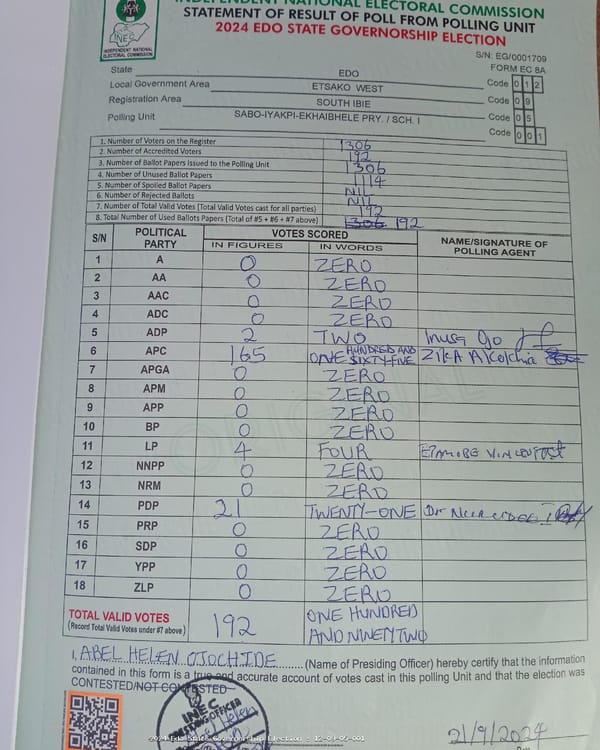 INDEPENDENT NATIONAL ELECTORAL COMMISSION
STATEMENT OF RESULT OF POLL FROM POLLING UNIT
2024 EDO STATE GOVERNORSHIP ELECTION
INEC
INDEPENDENT NATIONAL
ELECTORAL COMMISSION
S/N: EG/0001709
FORM EC 8A
State EDO Code 0 1 2
Local Government Area ETSAKO WEST Code 0 9
Registration Area SOUTH IBIE Code 0 5
Polling Unit SABO-IYAKPI-EKHAIBHELE PRY. / SCH. I Code 0 0 1
1. Number of Voters on the Register 1306
2. Number of Accredited Voters 192
3. Number of Ballot Papers Issued to the Polling Unit 1306
4. Number of Unused Ballot Papers 1114
5. Number of Spoiled Ballot Papers NIL
6. Number of Rejected Ballots NIL
7. Number of Total Valid Votes (Total Valid Votes cast for all parties) 192
8. Total Number of Used Ballots Papers (Total of #5 + #6 + #7 above) 1306 192
S/N POLITICAL PARTY VOTES SCORED NAME/SIGNATURE OF POLLING AGENT
IN FIGURES IN WORDS
1 A 0 ZERO
2 AA 0 ZERO
3 AAC 0 ZERO
4 ADC 0 ZERO
5 ADP 2 TWO
6 APC 165 ONE HUNDRED AND SIXTY-FIVE
7 APGA 0 ZERO
8 APM 0 ZERO
9 APP 0 ZERO
10 BP 0 ZERO
11 LP 4 FOUR
12 NNPP 0 ZERO
13 NRM 0 ZERO
14 PDP 21 TWENTY-ONE
15 PRP 0 ZERO
16 SDP 0 ZERO
17 YPP 0 ZERO
18 ZLP 0 ZERO
ORIGINAL
TOTAL VALID VOTES 192 ONE HUNDRED
(Record Total Valid Votes under #7 above) AND NINETY TWO
I, ABEL HELEN OJOCHIDE (Name of Presiding Officer) hereby certify that the information
contained in this form is a true and accurate account of votes cast in this polling Unit and that the election was
CONTESTED/NOT CONTESTED
INEC
21/9/2024
Date
2024 Edo State Governorship Election - 12-09-05-001